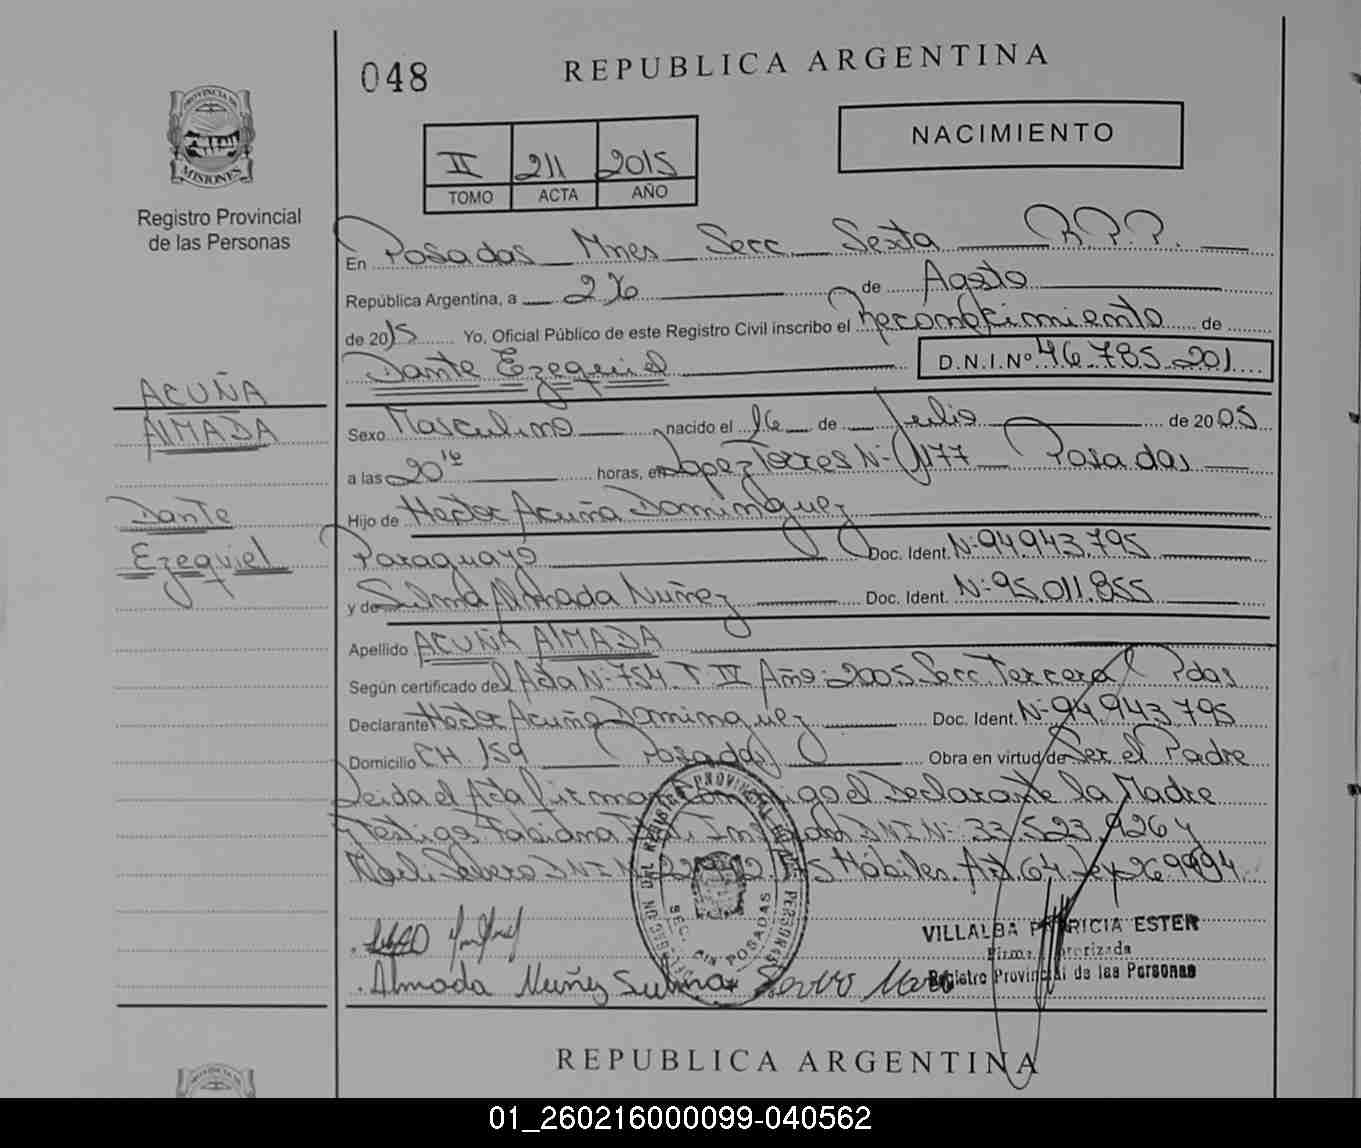 048
REPUBLICA ARGENTINA
PROVINCIA DE
MISIONES
Registro Provincial
de las Personas
NACIMIENTO
II 211 2015
TOMO ACTA AÑO
En Posadas Mnes Secc Sexta R.P.P.
República Argentina, a 26 de Agosto
de 2015 Yo, Oficial Público de este Registro Civil inscribo el Reconocimiento de
Dante Ezequiel D.N.I.Nº 46.785.201
ACUÑA
AlMADA
Dante
Ezequiel
Sexo Masculino nacido el 16 de Julio de 2005
a las 20 10 horas, en Lopez Torres Nº 1177 Posadas
Hijo de Hector Acuña Dominguez
Paraguayo Doc. Ident. Nº 94.943.795
y de Sulma Almada Nuñez Doc. Ident. Nº 95.011.855
Apellido ACUÑA AlMADA
Según certificado del Acta Nº 754 T IV Año: 2005 Secc Tercera Pdas
Declarante Hector Acuña Dominguez Doc. Ident. Nº 94.943.795
Domicilio CH 159 Posadas Obra en virtud de Ser el Padre
Leida el Acta firman Conmigo el Declarante la Madre
y testigos Fabiana DNI Nº 33.523.926 y
DNI Nº Hábiles. Art. 64 Ley 26994
VILLALBA PATRICIA ESTER
Firma Autorizada
Registro Provincial de las Personas
Almada Nuñez Sulma
DELEGACION DEL REGISTRO PROVINCIAL DE LAS PERSONAS
SEC. 6ta POSADAS
REPUBLICA ARGENTINA
01_260216000099-040562